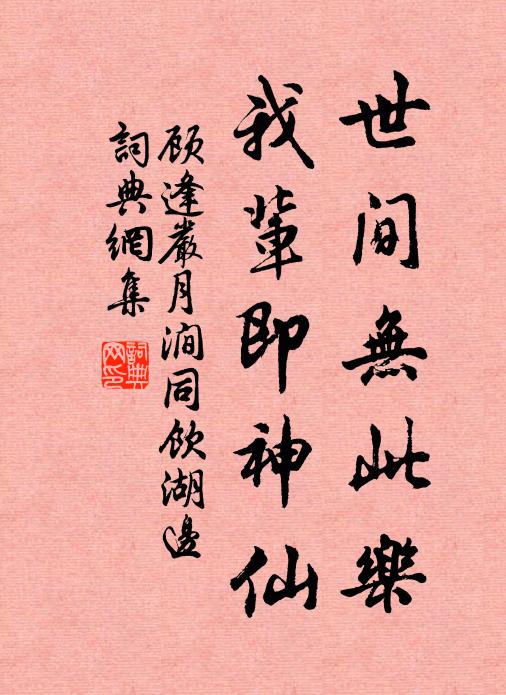 世间無此樂
我輩即神仙
顾逢嚴月澗同飲湖邊
詞典網集
詞典网印